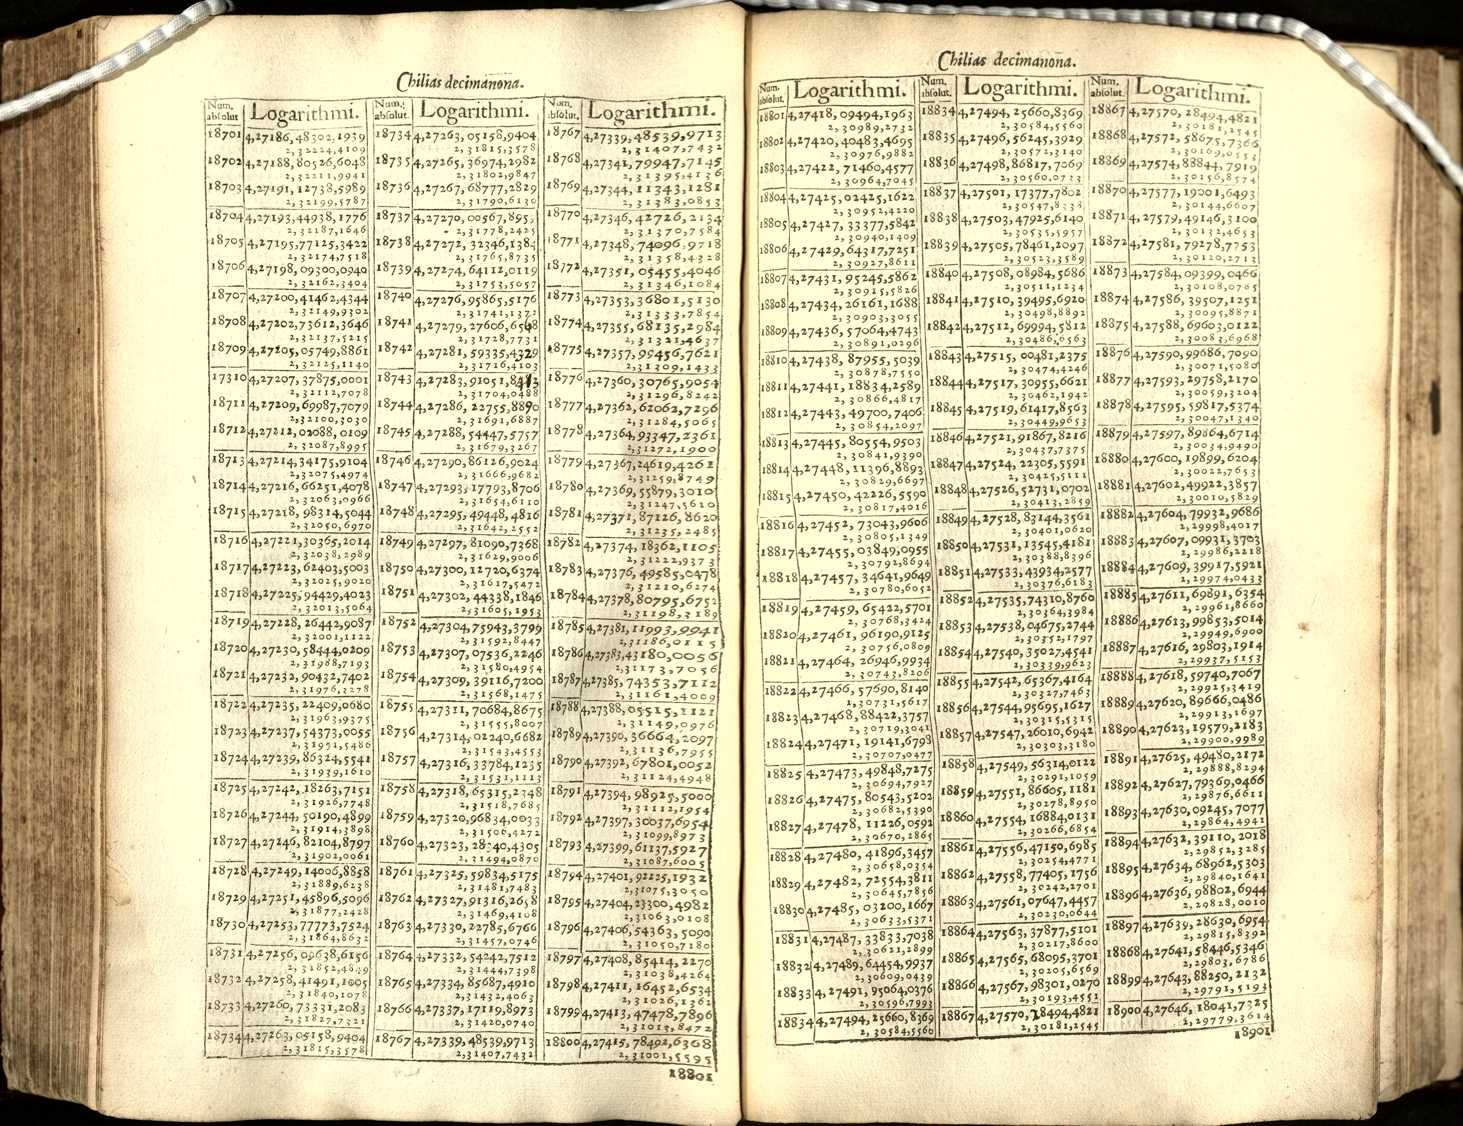 Chilias decimanona.
Num. absolut. Logarithmi.
18701 4,27186,48302,1939
2,32224,4109
18702 4,27188,80526,6048
2,32211,9941
18703 4,27191,12738,5989
2,32199,5787
18704 4,27193,44938,1776
2,32187,1646
18705 4,27195,77125,3422
2,32174,7518
18706 4,27198,09300,0940
2,32162,3404
18707 4,27200,41462,4344
2,32149,9302
18708 4,27202,73612,3646
2,32137,5215
18709 4,27205,05749,8861
2,32125,1140
17310 4,27207,37875,0001
2,32112,7078
18711 4,27209,69987,7079
2,32100,3030
18712 4,27212,02088,0109
2,32087,8995
18713 4,27214,34175,9104
2,32075,4974
18714 4,27216,66251,4078
2,32063,0966
18715 4,27218,98314,5044
2,32050,6970
18716 4,27221,30365,2014
2,32038,2989
18717 4,27223,62403,5003
2,32025,9020
18718 4,27225,94429,4023
2,32013,5064
18719 4,27228,26442,9087
2,32001,1122
18720 4,27230,58444,0209
2,31988,7193
18721 4,27232,90432,7402
2,31976,3278
18722 4,27235,22409,0680
2,31963,9375
18723 4,27237,54373,0055
2,31951,5486
18724 4,27239,86324,5541
2,31939,1610
18725 4,27242,18263,7151
2,31926,7748
18726 4,27244,50190,4899
2,31914,3898
18727 4,27246,82104,8797
2,31902,0061
18728 4,27249,14006,8858
2,31889,6238
18729 4,27251,45896,5096
2,31877,2428
18730 4,27253,77773,7524
2,31864,8632
18731 4,27256,09638,6156
2,31852,4849
18732 4,27258,41491,1005
2,31840,1078
18733 4,27260,73331,2083
2,31827,7321
18734 4,27263,05158,9404
2,31815,3578
Num. absolut. Logarithmi.
18734 4,27263,05158,9404
2,31815,3578
18735 4,27265,36974,2982
2,31802,9847
18736 4,27267,68777,2829
2,31790,6130
18737 4,27270,00567,8959
2,31778,2425
18738 4,27272,32346,1384
2,31765,8735
18739 4,27274,64112,0119
2,31753,5057
18740 4,27276,95865,5176
2,31741,1392
18741 4,27279,27606,6568
2,31728,7731
18742 4,27281,59335,4329
2,31716,4103
18743 4,27283,91051,8413
2,31704,0488
18744 4,27286,22755,8890
2,31691,6887
18745 4,27288,54447,5757
2,31679,3267
18746 4,27290,86126,9024
2,31666,9682
18747 4,27293,17793,8706
2,31654,6110
18748 4,27295,49448,4816
2,31642,2552
18749 4,27297,81090,7368
2,31629,9006
18750 4,27300,12720,6374
2,31617,5472
18751 4,27302,44338,1846
2,31605,1953
18752 4,27304,75943,3799
2,31592,8447
18753 4,27307,07536,2246
2,31580,4954
18754 4,27309,39116,7200
2,31568,1475
18755 4,27311,70684,8675
2,31555,8007
18756 4,27314,02240,6682
2,31543,4553
18757 4,27316,33784,1235
2,31531,1113
18758 4,27318,65315,2348
2,31518,7685
18759 4,27320,96834,0033
2,31506,4272
18760 4,27323,28340,4305
2,31494,0870
18761 4,27325,59834,5175
2,31481,7483
18762 4,27327,91316,2658
2,31469,4108
18763 4,27330,22785,6766
2,31457,0746
18764 4,27332,54242,7512
2,31444,7398
18765 4,27334,85687,4910
2,31432,4063
18766 4,27337,17119,8973
2,31420,0740
18767 4,27339,48539,9713
2,31407,7432
Num. absolut. Logarithmi.
18767 4,27339,48539,9713
2,31407,7432
18768 4,27341,79947,7145
2,31395,4136
18769 4,27344,11343,1281
2,31383,0853
18770 4,27346,42726,2134
2,31370,7584
18771 4,27348,74096,9718
2,31358,4328
18772 4,27351,05455,4046
2,31346,1084
18773 4,27353,36801,5130
2,31333,7854
18774 4,27355,68135,2984
2,31321,4637
18775 4,27357,99456,7621
2,31309,1433
18776 4,27360,30765,9054
2,31296,8242
18777 4,27362,62062,7296
2,31284,5065
18778 4,27364,93347,2361
2,31272,1900
18779 4,27367,24619,4261
2,31259,8749
18780 4,27369,55879,3010
2,31247,5610
18781 4,27371,87126,8620
2,31235,2485
18782 4,27374,18362,1105
2,31222,9373
18783 4,27376,49585,0478
2,31210,6274
18784 4,27378,80795,6752
2,31198,3189
18785 4,27381,11993,9941
2,31186,0115
18786 4,27383,43180,0056
2,31173,7056
18787 4,27385,74353,7112
2,31161,4009
18788 4,27388,05515,1121
2,31149,0976
18789 4,27390,36664,2097
2,31136,7955
18790 4,27392,67801,0052
2,31124,4948
18791 4,27394,98925,5000
2,31112,1954
18792 4,27397,30037,6954
2,31099,8973
18793 4,27399,61137,5927
2,31087,6005
18794 4,27401,92225,1932
2,31075,3050
18795 4,27404,23300,4982
2,31063,0108
18796 4,27406,54363,5090
2,31050,7180
18797 4,27408,85414,2270
2,31038,4264
18798 4,27411,16452,6534
2,31026,1362
18799 4,27413,47478,7896
2,31013,8472
18800 4,27415,78492,6368
2,31001,5595
18801
Chilias decimanona.
Num. absolut. Logarithmi.
18801 4,27418,09494,1963
2,30989,2732
18802 4,27420,40483,4695
2,30976,9882
18803 4,27422,71460,4577
2,30964,7045
18804 4,27425,02425,1622
2,30952,4220
18805 4,27427,33377,5842
2,30940,1409
18806 4,27429,64317,7251
2,30927,8611
18807 4,27431,95245,5862
2,30915,5826
18808 4,27434,26161,1688
2,30903,3055
18809 4,27436,57064,4743
2,30891,0296
18810 4,27438,87955,5039
2,30878,7550
18811 4,27441,18834,2589
2,30866,4817
18812 4,27443,49700,7406
2,30854,2097
18813 4,27445,80554,9503
2,30841,9390
18814 4,27448,11396,8893
2,30829,6697
18815 4,27450,42226,5590
2,30817,4016
18816 4,27452,73043,9606
2,30805,1349
18817 4,27455,03849,0955
2,30792,8694
18818 4,27457,34641,9649
2,30780,6052
18819 4,27459,65422,5701
2,30768,3424
18820 4,27461,96190,9125
2,30756,0809
18821 4,27464,26946,9934
2,30743,8206
18822 4,27466,57690,8140
2,30731,5617
18823 4,27468,88422,3757
2,30719,3041
18824 4,27471,19141,6798
2,30707,0477
18825 4,27473,49848,7275
2,30694,7927
18826 4,27475,80543,5202
2,30682,5390
18827 4,27478,11226,0592
2,30670,2865
18828 4,27480,41896,3457
2,30658,0354
18829 4,27482,72554,3811
2,30645,7856
18830 4,27485,03200,1667
2,30633,5371
18831 4,27487,33833,7038
2,30621,2899
18832 4,27489,64454,9937
2,30609,0439
18833 4,27491,95064,0376
2,30596,7993
18834 4,27494,25660,8369
2,30584,5560
Num. absolut. Logarithmi.
18834 4,27494,25660,8369
2,30584,5560
18835 4,27496,56245,3929
2,30572,3140
18836 4,27498,86817,7069
2,30560,0733
18837 4,27501,17377,7802
2,30547,8338
18838 4,27503,47925,6140
2,30535,5957
18839 4,27505,78461,2097
2,30523,3589
18840 4,27508,08984,5686
2,30511,1234
18841 4,27510,39495,6920
2,30498,8892
18842 4,27512,69994,5812
2,30486,6563
18843 4,27515,00481,2375
2,30474,4246
18844 4,27517,30955,6621
2,30462,1942
18845 4,27519,61417,8563
2,30449,9653
18846 4,27521,91867,8216
2,30437,7375
18847 4,27524,22305,5591
2,30425,5111
18848 4,27526,52731,0702
2,30413,2859
18849 4,27528,83144,3561
2,30401,0620
18850 4,27531,13545,4181
2,30388,8396
18851 4,27533,43934,2577
2,30376,6183
18852 4,27535,74310,8760
2,30364,3984
18853 4,27538,04675,2744
2,30352,1797
18854 4,27540,35027,4541
2,30339,9623
18855 4,27542,65367,4164
2,30327,7463
18856 4,27544,95695,1627
2,30315,5315
18857 4,27547,26010,6942
2,30303,3180
18858 4,27549,56314,0122
2,30291,1059
18859 4,27551,86605,1181
2,30278,8950
18860 4,27554,16884,0131
2,30266,6854
18861 4,27556,47150,6985
2,30254,4771
18862 4,27558,77405,1756
2,30242,2701
18863 4,27561,07647,4457
2,30230,0644
18864 4,27563,37877,5101
2,30217,8600
18865 4,27565,68095,3701
2,30205,6569
18866 4,27567,98301,0270
2,30193,4551
18867 4,27570,28494,4821
2,30181,2545
Num. absolut. Logarithmi.
18867 4,27570,28494,4821
2,30181,2545
18868 4,27572,58675,7366
2,30169,0553
18869 4,27574,88844,7919
2,30156,8574
18870 4,27577,19001,6493
2,30144,6607
18871 4,27579,49146,3100
2,30132,4653
18872 4,27581,79278,7753
2,30120,2713
18873 4,27584,09399,0466
2,30108,0785
18874 4,27586,39507,1251
2,30095,8871
18875 4,27588,69603,0122
2,30083,6968
18876 4,27590,99686,7090
2,30071,5080
18877 4,27593,29758,2170
2,30059,3204
18878 4,27595,59817,5374
2,30047,1340
18879 4,27597,89864,6714
2,30034,9490
18880 4,27600,19899,6204
2,30022,7653
18881 4,27602,49922,3857
2,30010,5829
18882 4,27604,79932,9686
2,29998,4017
18883 4,27607,09931,3703
2,29986,2218
18884 4,27609,39917,5921
2,29974,0433
18885 4,27611,69891,6354
2,29961,8660
18886 4,27613,99853,5014
2,29949,6900
18887 4,27616,29803,1914
2,29937,5153
18888 4,27618,59740,7067
2,29925,3419
18889 4,27620,89666,0486
2,29913,1697
18890 4,27623,19579,2183
2,29900,9989
18891 4,27625,49480,2172
2,29888,8294
18892 4,27627,79369,0466
2,29876,6611
18893 4,27630,09245,7077
2,29864,4941
18894 4,27632,39110,2018
2,29852,3285
18895 4,27634,68962,5303
2,29840,1641
18896 4,27636,98802,6944
2,29828,0010
18897 4,27639,28630,6954
2,29815,8392
18868 4,27641,58446,5346
2,29803,6786
18899 4,27643,88250,2132
2,29791,5193
18900 4,27646,18041,7325
2,29779,3614
18901